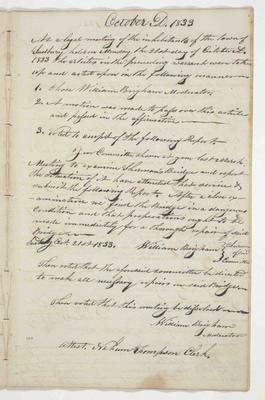 October D. 1833
At a legal meeting of the inhabitants of the town of
Sudbury holden Monday the 21st day of October AD
1833 the articles in the preceeding warrant were taken
up and acted upon in the following manner
1. Chose William Brigham Moderator
2. A motion was made to pass over this article
and passed in the affirmative
3. Voted to accept of the following Report
Your Committee chosen at your last March
Meeting to examine Sherman's Bridge and report
the situation of it have attended that service &
submit the following Report After a close ex-
amination we find the Bridge in a dangerous
Condition and that preparations ought to be
made immediately for a thorough repair of said
Bridge
Sudbury Oct. 21st 1833. William Brigham
Committee
Then voted that the aforesaid committee be directed
to make all necessary repairs on said Bridge
Then voted that this meeting be dissolved
William Brigham
Moderator
Attest. Nahum Thompson Clerk.